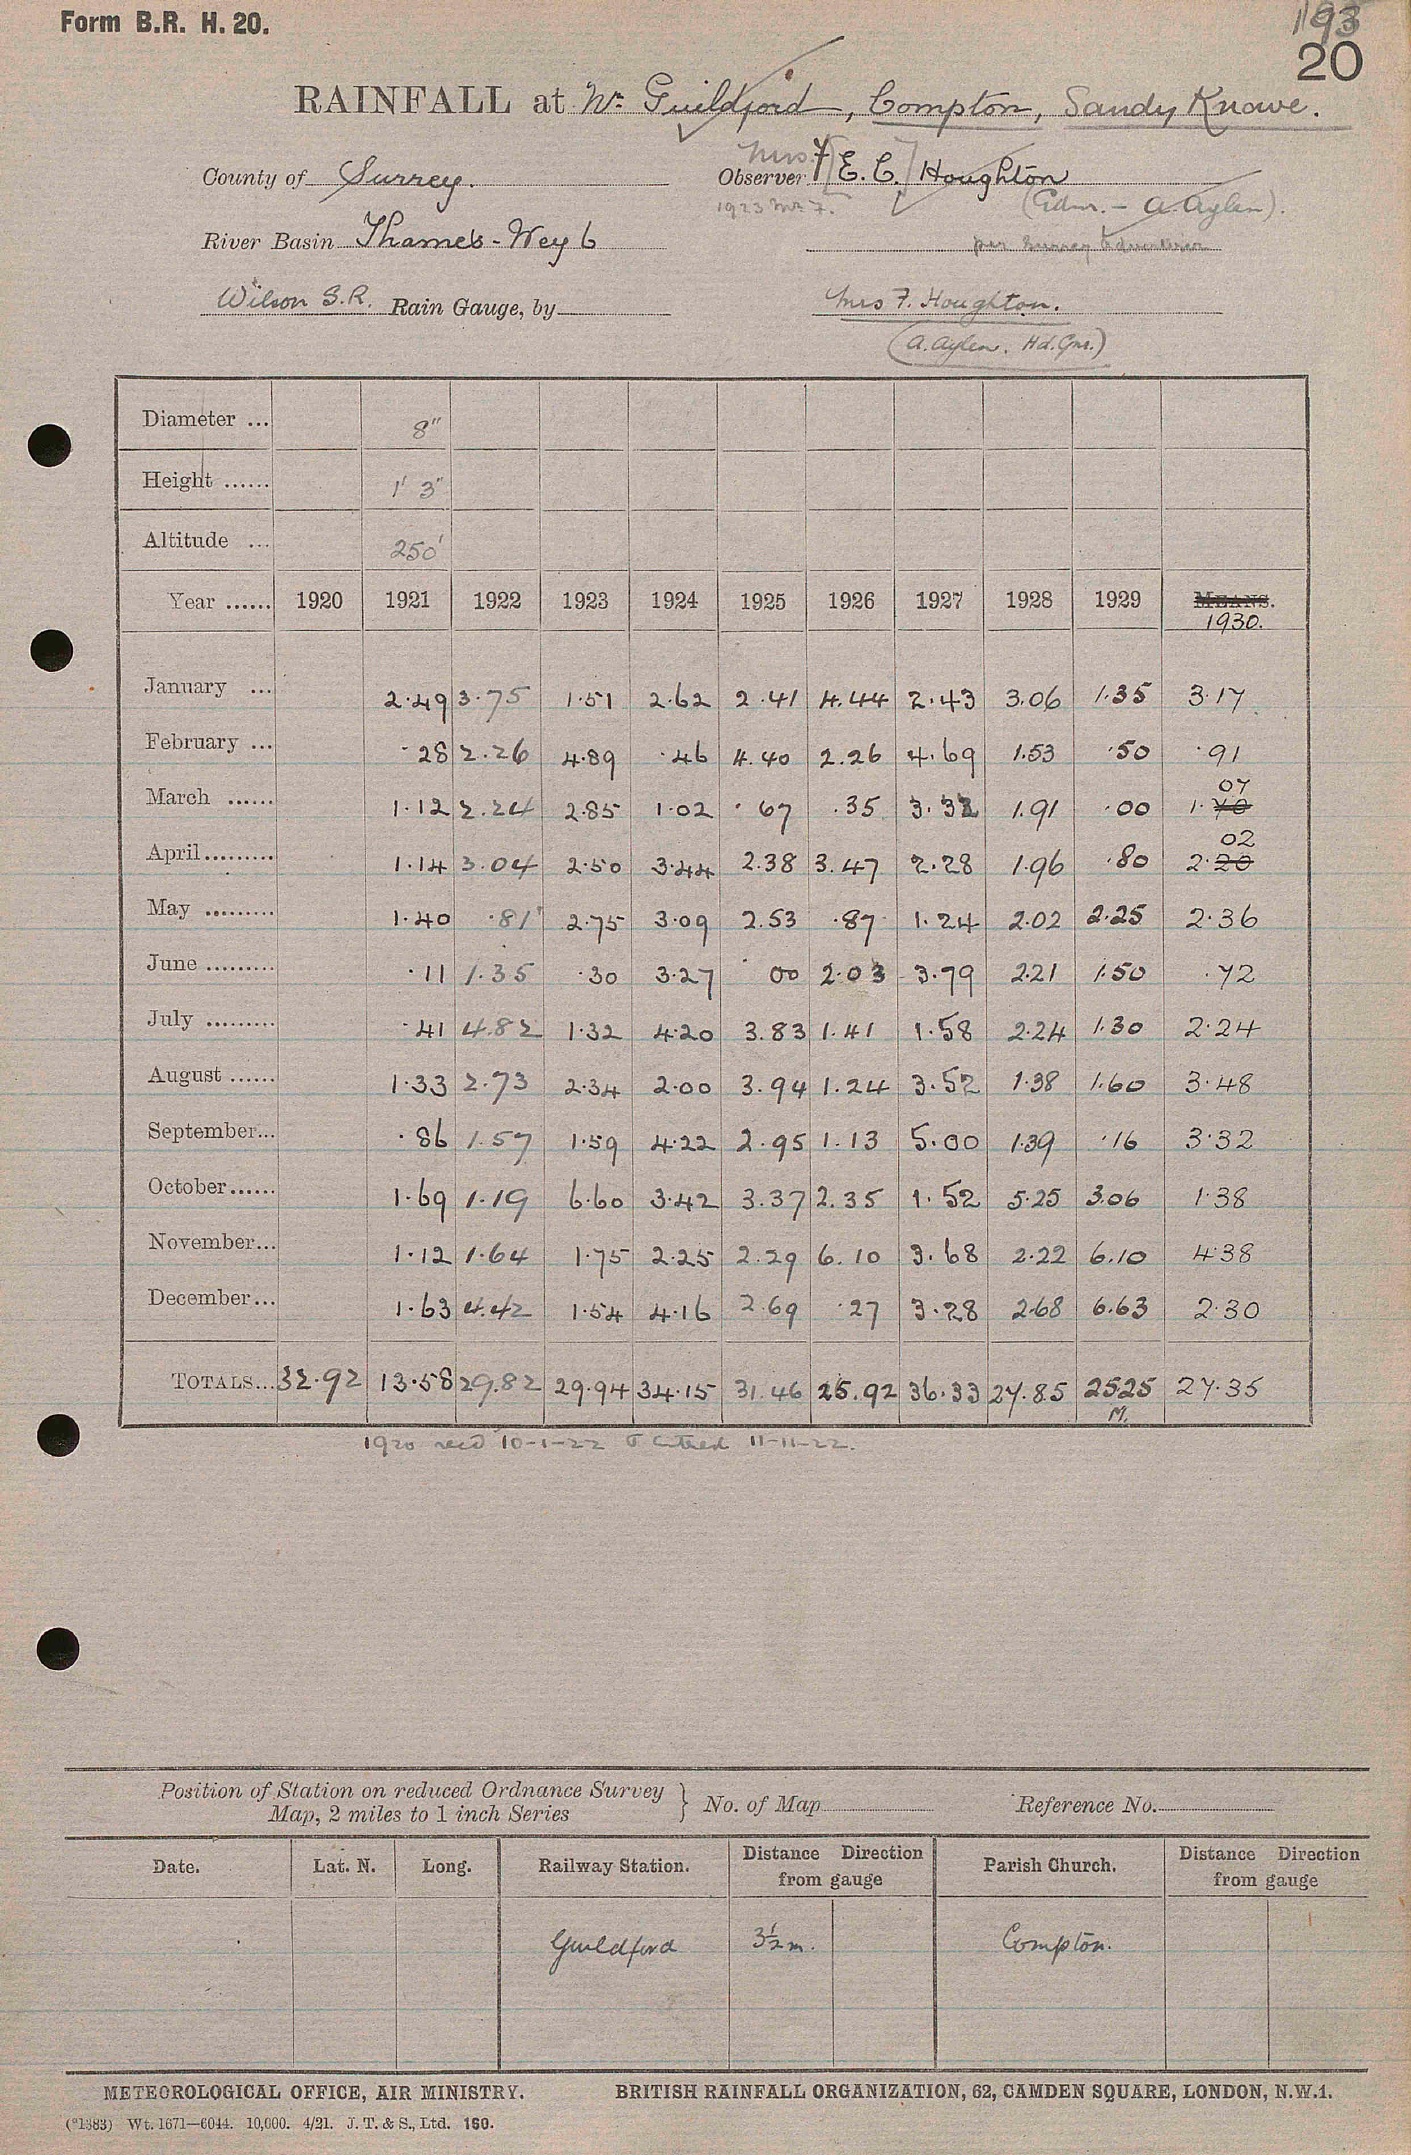 Form B.R. H. 20.
193
20
RAINFALL at Nr. Guildford, Compton, Sandy Knowe.
County of Surrey. Observer Mrs. F [E. C.] Houghton
1923 Mrs F. (Gdnr. - A. Aylen).
River Basin Thames - Wey 6 per Surrey Advertiser
Wilson S.R. Rain Gauge, by Mrs F. Houghton.
(A. Aylen. Hd. Gnr.)
Diameter ... 8"
Height ...... 1' 3"
Altitude ... 250'
Year ...... 1920 1921 1922 1923 1924 1925 1926 1927 1928 1929 MEANS.
1930.
January ... 2.49 3.75 1.51 2.62 2.41 4.44 2.43 3.06 1.35 3.17
February ... .28 2.26 4.89 .46 4.40 2.26 4.69 1.53 .50 .91
07
March ...... 1.12 2.24 2.85 1.02 .67 .35 3.32 1.91 .00 1.70
02
April......... 1.14 3.04 2.50 3.44 2.38 3.47 2.28 1.96 .80 2.20
May ......... 1.40 .81 2.75 3.09 2.53 .87 1.24 2.02 2.25 2.36
June ......... .11 1.35 .30 3.27 .00 2.03 3.79 2.21 1.50 .72
July ......... .41 4.82 1.32 4.20 3.83 1.41 1.58 2.24 1.30 2.24
August ...... 1.33 2.73 2.34 2.00 3.94 1.24 3.52 1.38 1.60 3.48
September... .86 1.57 1.59 4.22 2.95 1.13 5.00 1.39 .16 3.32
October...... 1.69 1.19 6.60 3.42 3.37 2.35 1.52 5.25 3.06 1.38
November... 1.12 1.64 1.75 2.25 2.29 6.10 3.68 2.22 6.10 4.38
December... 1.63 4.42 1.54 4.16 2.69 .27 3.28 2.68 6.63 2.30
TOTALS... 32.92 13.58 29.82 29.94 34.15 31.46 25.92 36.33 27.85 25.25 27.35
M.
1920 recd 10-1-22 & entered 11-11-22.
Position of Station on reduced Ordnance Survey
Map, 2 miles to 1 inch Series } No. of Map Reference No.
Date. Lat. N. Long. Railway Station. Distance Direction from gauge Parish Church. Distance Direction from gauge
Guildford 3½ m. Compton.
METEOROLOGICAL OFFICE, AIR MINISTRY. BRITISH RAINFALL ORGANIZATION, 62, CAMDEN SQUARE, LONDON, N.W.1.
(*1383) Wt. 1671—6044. 10,000. 4/21. J. T. & S., Ltd. 160.